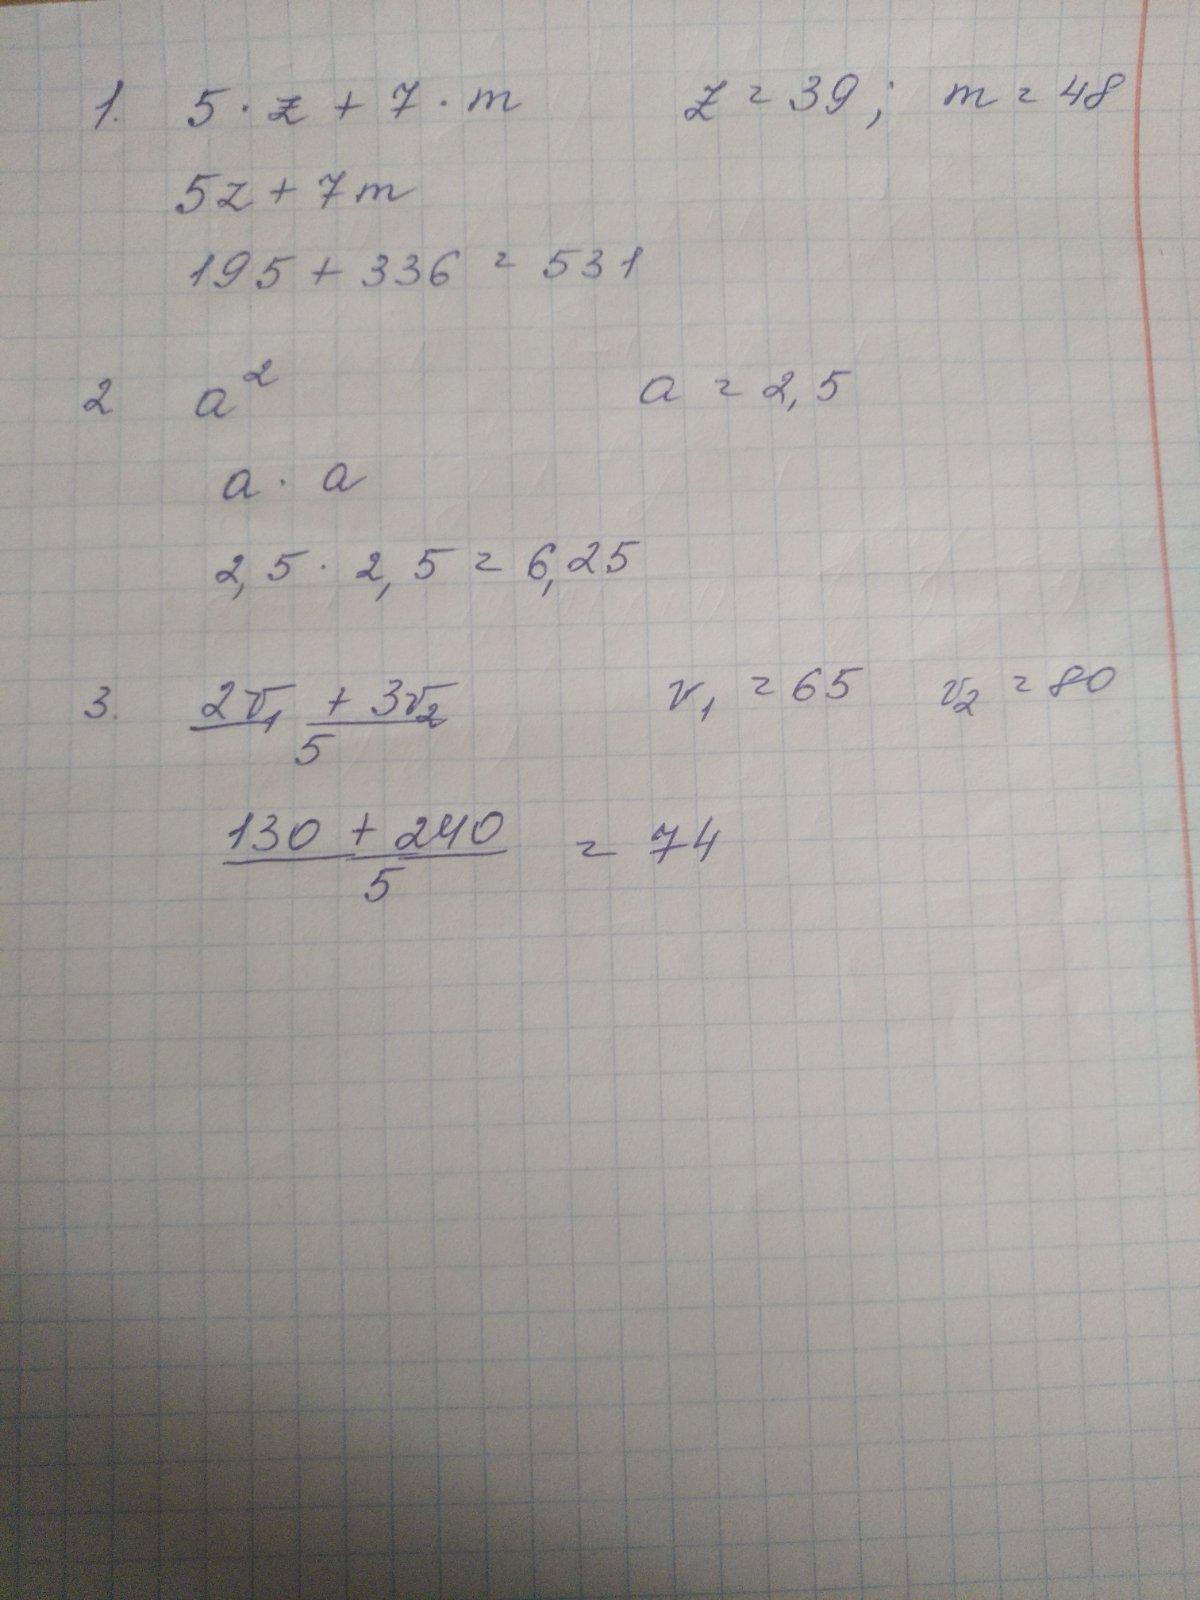 1. 5 · z + 7 · m z = 39; m = 48
5z + 7m
195 + 336 = 531
2 a² a = 2,5
a · a
2,5 · 2,5 = 6,25
3. 2v₁ + 3v₂ v₁ = 65 v₂ = 80
5
130 + 240 = 74
5